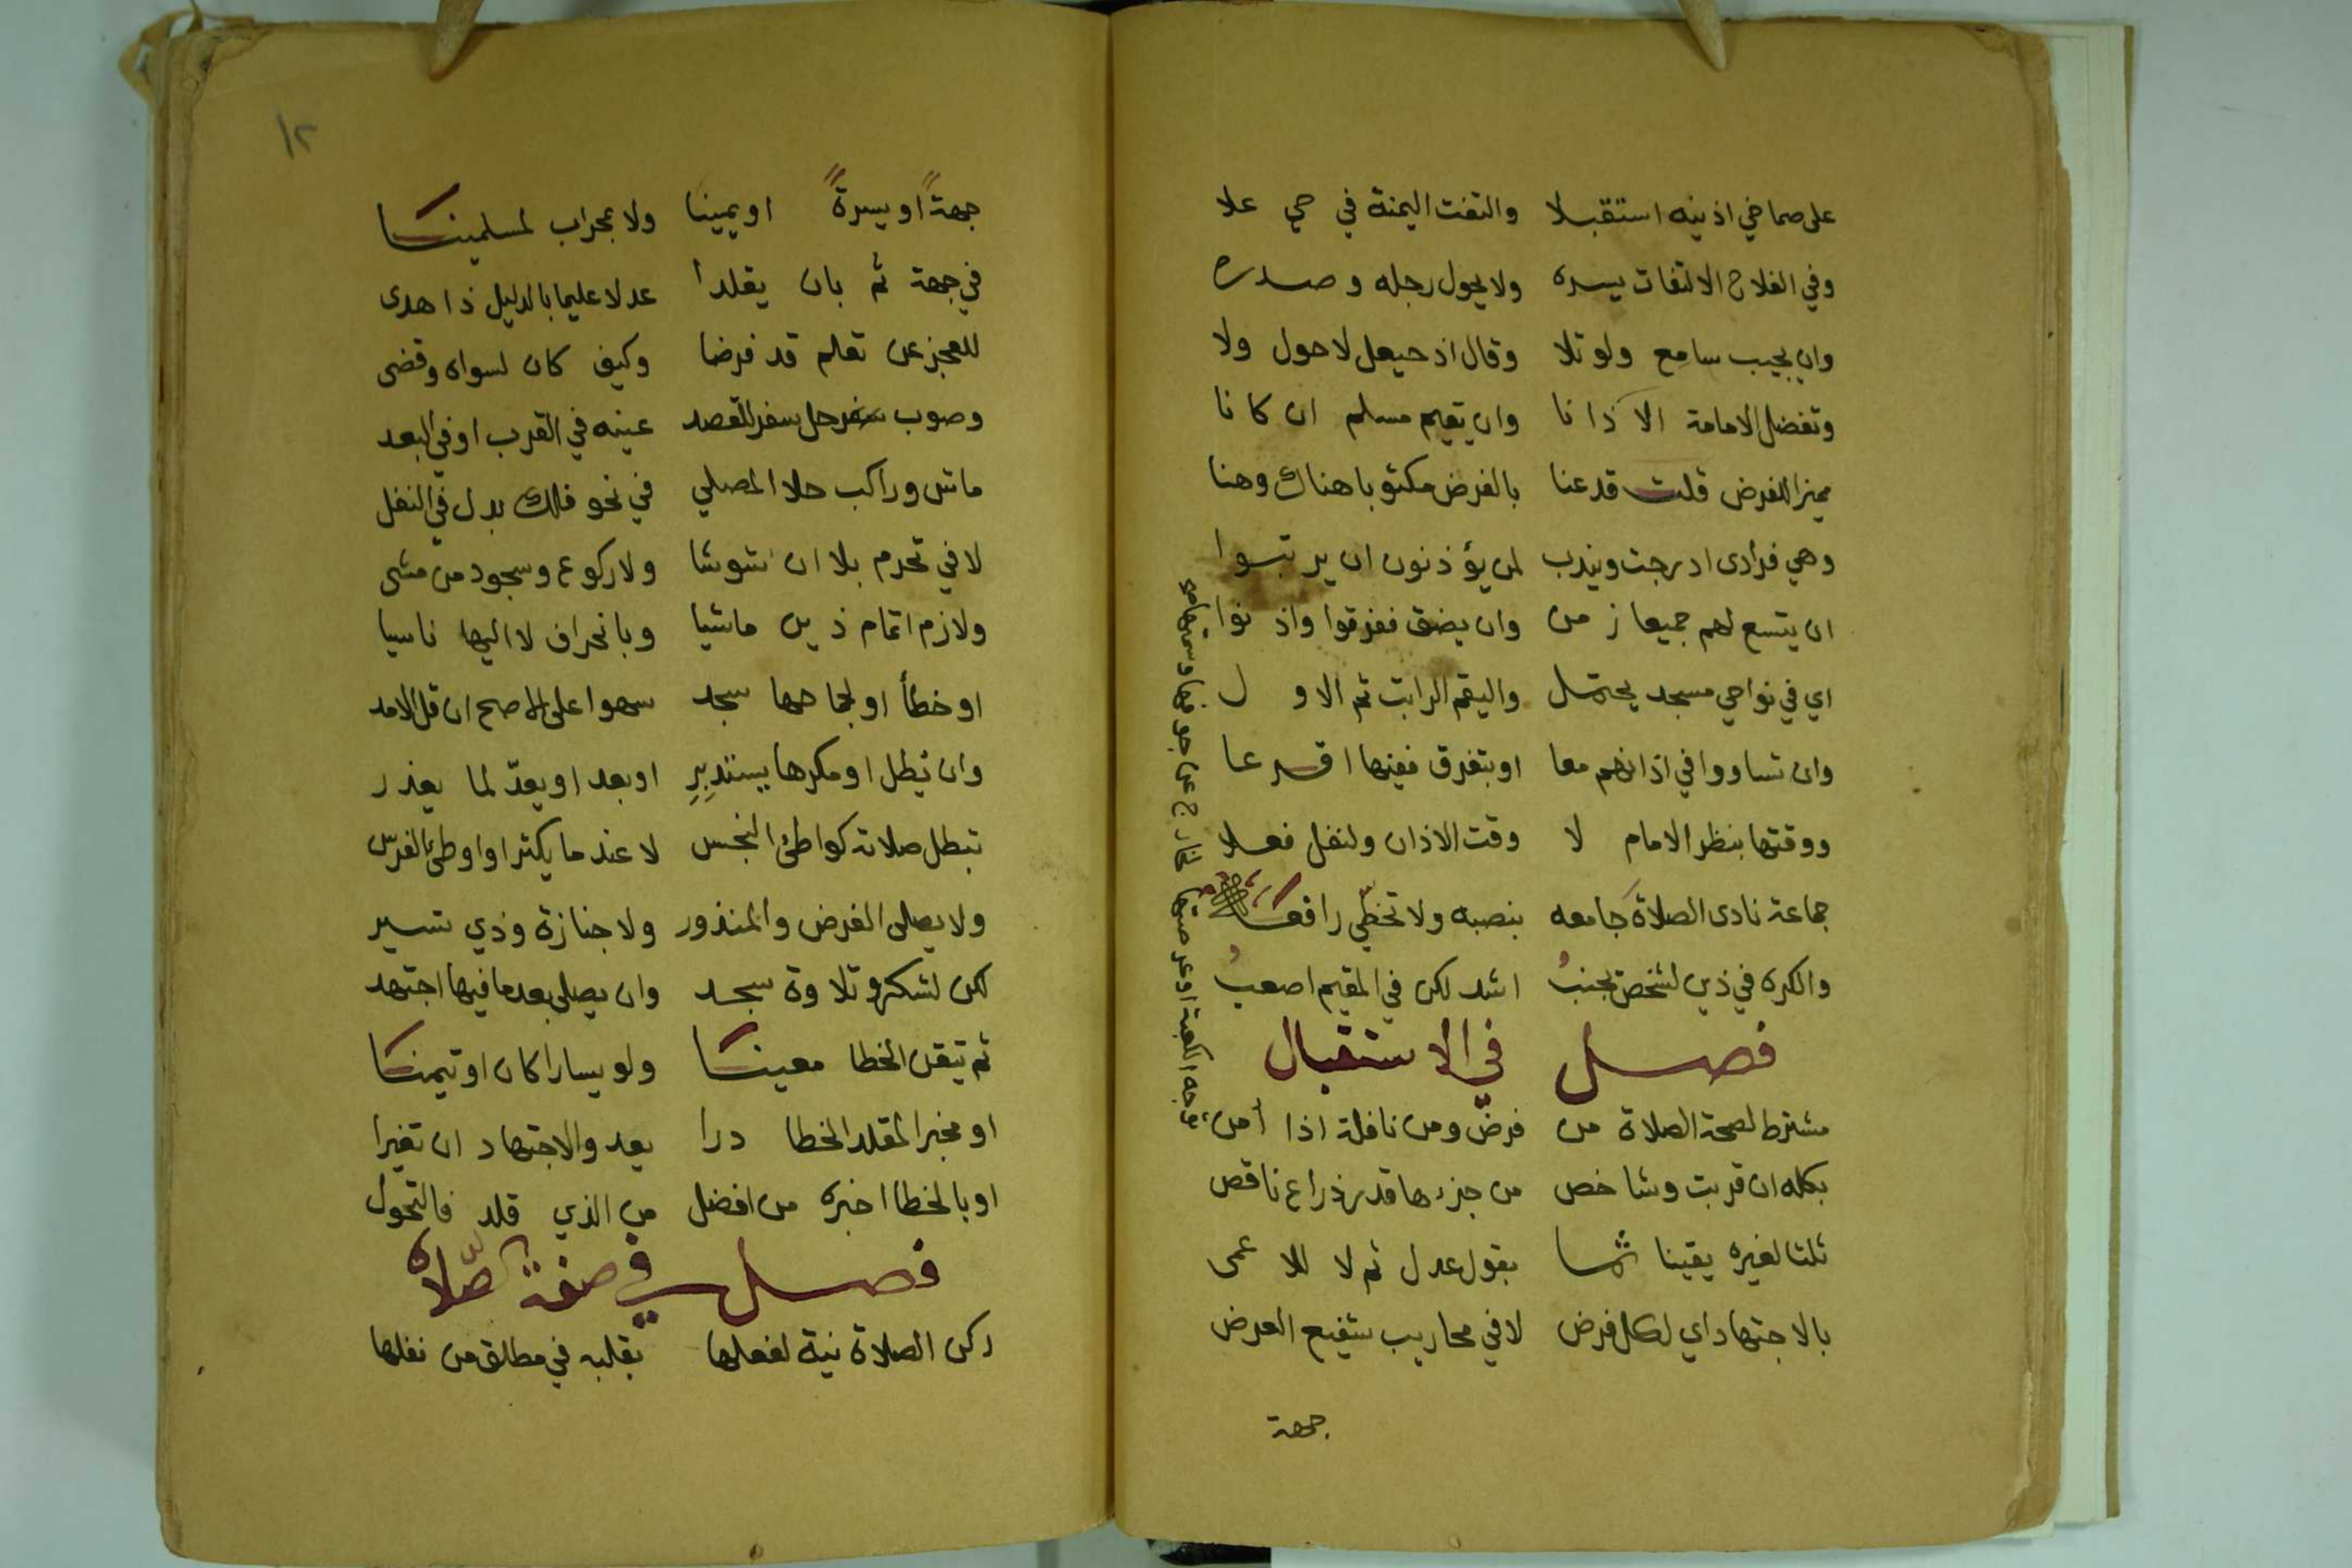 على صماخي اذنيه استقبلا والتفت اليمنة في حي علا
وفي الفلاح الالتفات يسره ولا يحول رجله وصدره
وان يجيب سامع ولو تلا وقال اذ حيعل لا حول ولا
وتفضل الامامة الاذانا وان يقيم مسلم ان كانا
مميزا للفرض قلت قد عنا بالفرض مكتوبا هناك وهنا
وهي فرادى ادرجت ويندب لمن يؤذنون ان يرتبوا
ان يتسع لهم جميعا زمن وان يضق ففرقوا واذنوا
اي في نواحي مسجد يحتمل واليقم الراتب ثم الاول
وان تساووا في اذانهم معا او بتفرق ففيها اقرعا
ووقتها بنظر الامام لا وقت الاذان ولنفل فعلا
جماعة نادى الصلاة جامعه بنصبه ولا تخطي رافعه
والكره في ذين لشخص يجنب اشد لكن في المقيم اصعب
فصل في الاستقبال
مشترط لصحة الصلاة من فرض ومن نافلة اذا أمن
بكله ان قربت وشاخص من جزءها قدر ذراع ناقص
ثلثا لغيره يقينا ثما بقول عدل ثم لا للاعمى
بالاجتهاد اي لكل فرض لا في محاريب شفيع العرض
جهة
١٢
جهةً او يسرةً او يمينا ولا بمحراب لمسلمينا
في جهة ثم بان يقلدا عدلا عليما بالدليل ذا هدى
للعجز عن تعلم قد فرضا وكيف كان لسواه وقضى
وصوب سفر حل سفر للقصد عينه في القرب او في البعد
ماش وراكب خلا المصلي في نحو فلك بدل في النفل
لا في تحرم بلا ان شوشا ولا ركوع وسجود من مشى
ولازم اتمام ذين ماشيا وبانحراف لا اليها ناسيا
او خطأ او لجماحها سجد سهوا على الاصح ان قل الامد
وان يطل او مكرها يستدبر او بعد او يعدّ لما يعذر
تبطل صلاته كواطئ النجس لا عند ما يكثر او اوطئ الفرس
ولا يصلى الفرض والمنذور ولا جنازة وذي تسير
لكن لشكر وتلاوة سجد وان يصلي بعد ما فيها اجتهد
ثم تيقن الخطا معينا ولو يسارا كان او تيمنا
او مخبر المقلد الخطا درا يعد والاجتهاد ان تغيرا
او بالخطا اخبره من افضل من الذي قلد فالتحول
فصل في صفة الصّلاة
ركن الصلاة نية لفعلها بقلبه في مطلق من نفلها